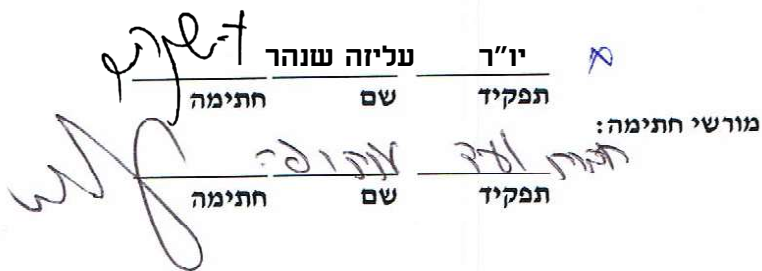 יו"ר עליזה שנהר
תפקיד שם חתימה
מורשי חתימה:
חברת ועד
תפקיד שם חתימה